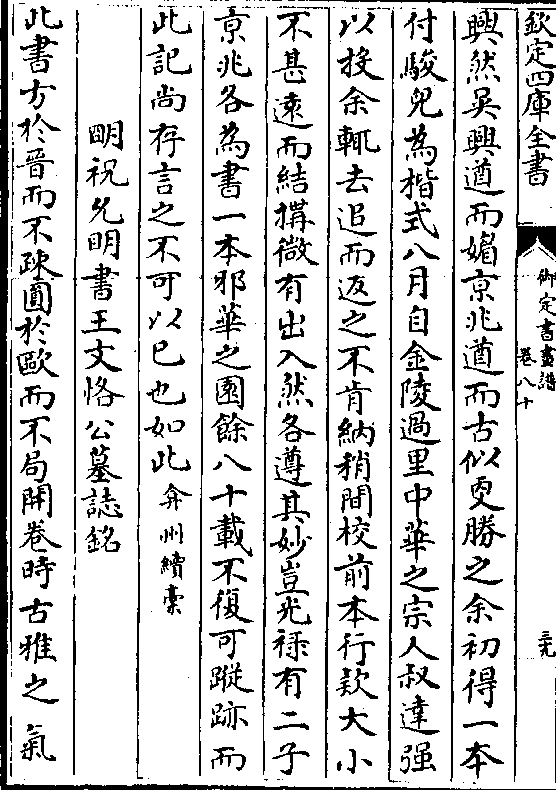 欽定四庫全書
御定書畫譜
卷八十
三九
興然吳興遒而媚京兆遒而古似更勝之余初得一本
付駿兒為楷式八月自金陵過里中華之宗人叔達强
以投余輒去追而返之不肯納稍間校前本行欵大小
不甚遠而結搆微有出入然各遵其妙豈光禄有二子
京兆各為書一本邪華之園餘八十載不復可蹤跡而
此記尚存言之不可以已也如此弇州續藁
明祝允明書王文恪公墓誌銘
此書方於晉而不疎圓於歐而不局開卷時古雅之氣